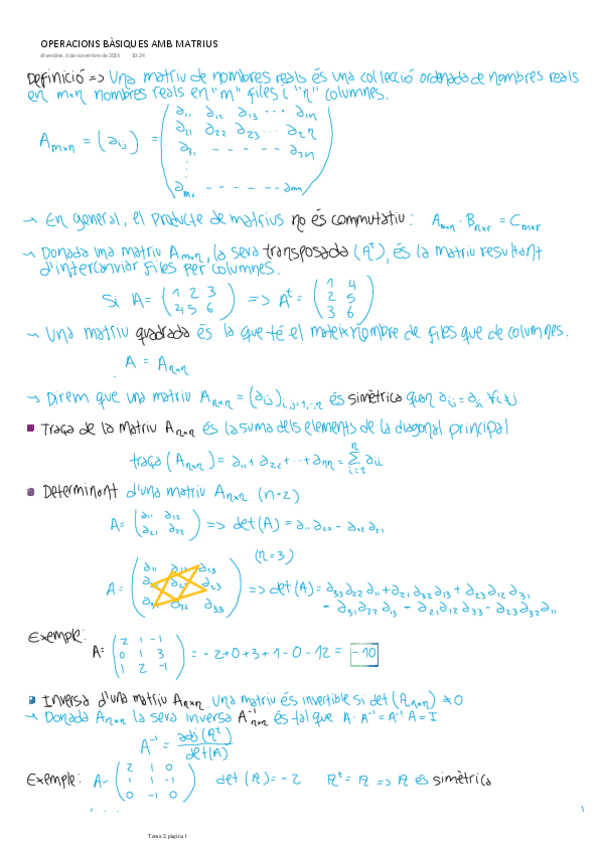 OPERACIONS BÀSIQUES AMB MATRIUS
divendres, 3 de novembre de 2023 10:24
Definició => Una matriu de nombres reals és una col·lecció ordenada de nombres reals
en m×n nombres reals en "m" files i "n" columnes.
a₁₁ a₁₂ a₁₃ ... a₁n
a₂₁ a₂₂ a₂₃ ... a₂n
Am×n = (aij) = a₃₁ - - - - - a₃n
⋮
am₁ - - - - - amn
→ En general, el producte de matrius no és commutatiu: Am×n · Bn×r = Cm×r
→ Donada una matriu Am×n, la seva transposada (Aᵗ), és la matriu resultant
d'intercanviar files per columnes.
Si A = (1 2 3 / 4 5 6) => Aᵗ = (1 4 / 2 5 / 3 6)
→ Una matriu quadrada és la que té el mateix nombre de files que de columnes.
A = An×n
→ Direm que una matriu An×n = (aij) i,j=1,-,n és simètrica quan aij = aji ∀i≠j
Traça de la matriu An×n és la suma dels elements de la diagonal principal
traça (An×n) = a₁₁ + a₂₂ + ... + ann = Σⁿᵢ₌₁ aii
Determinant d'una matriu An×n (n=2)
A = (a₁₁ a₁₂ / a₂₁ a₂₂) => det(A) = a₁₁a₂₂ - a₁₂a₂₁
(n=3)
a₁₁ a₁₂ a₁₃
A = a₂₁ a₂₂ a₂₃ => det(A) = a₃₃a₂₂a₁₁ + a₂₁a₃₂a₁₃ + a₂₃a₁₂a₃₁
a₃₁ a₃₂ a₃₃ - a₃₁a₂₂a₁₃ - a₂₁a₁₂a₃₃ - a₂₃a₃₂a₁₁
Exemple:
A = (2 1 -1 / 0 1 3 / 1 2 -1) = -2+0+3+1-0-12 = -10
Inversa d'una matriu An×n. Una matriu és invertible si det (An×n) ≠ 0
→ Donada An×n la seva inversa A⁻¹n×n és tal que A · A⁻¹ = A⁻¹ A = I
A⁻¹ = adj(Aᵗ) / det(A)
Exemple: A = (2 1 0 / 1 1 -1 / 0 -1 0) det (A) = -2 Aᵗ = A => A és simètrica
Tema 2, pàgina 1